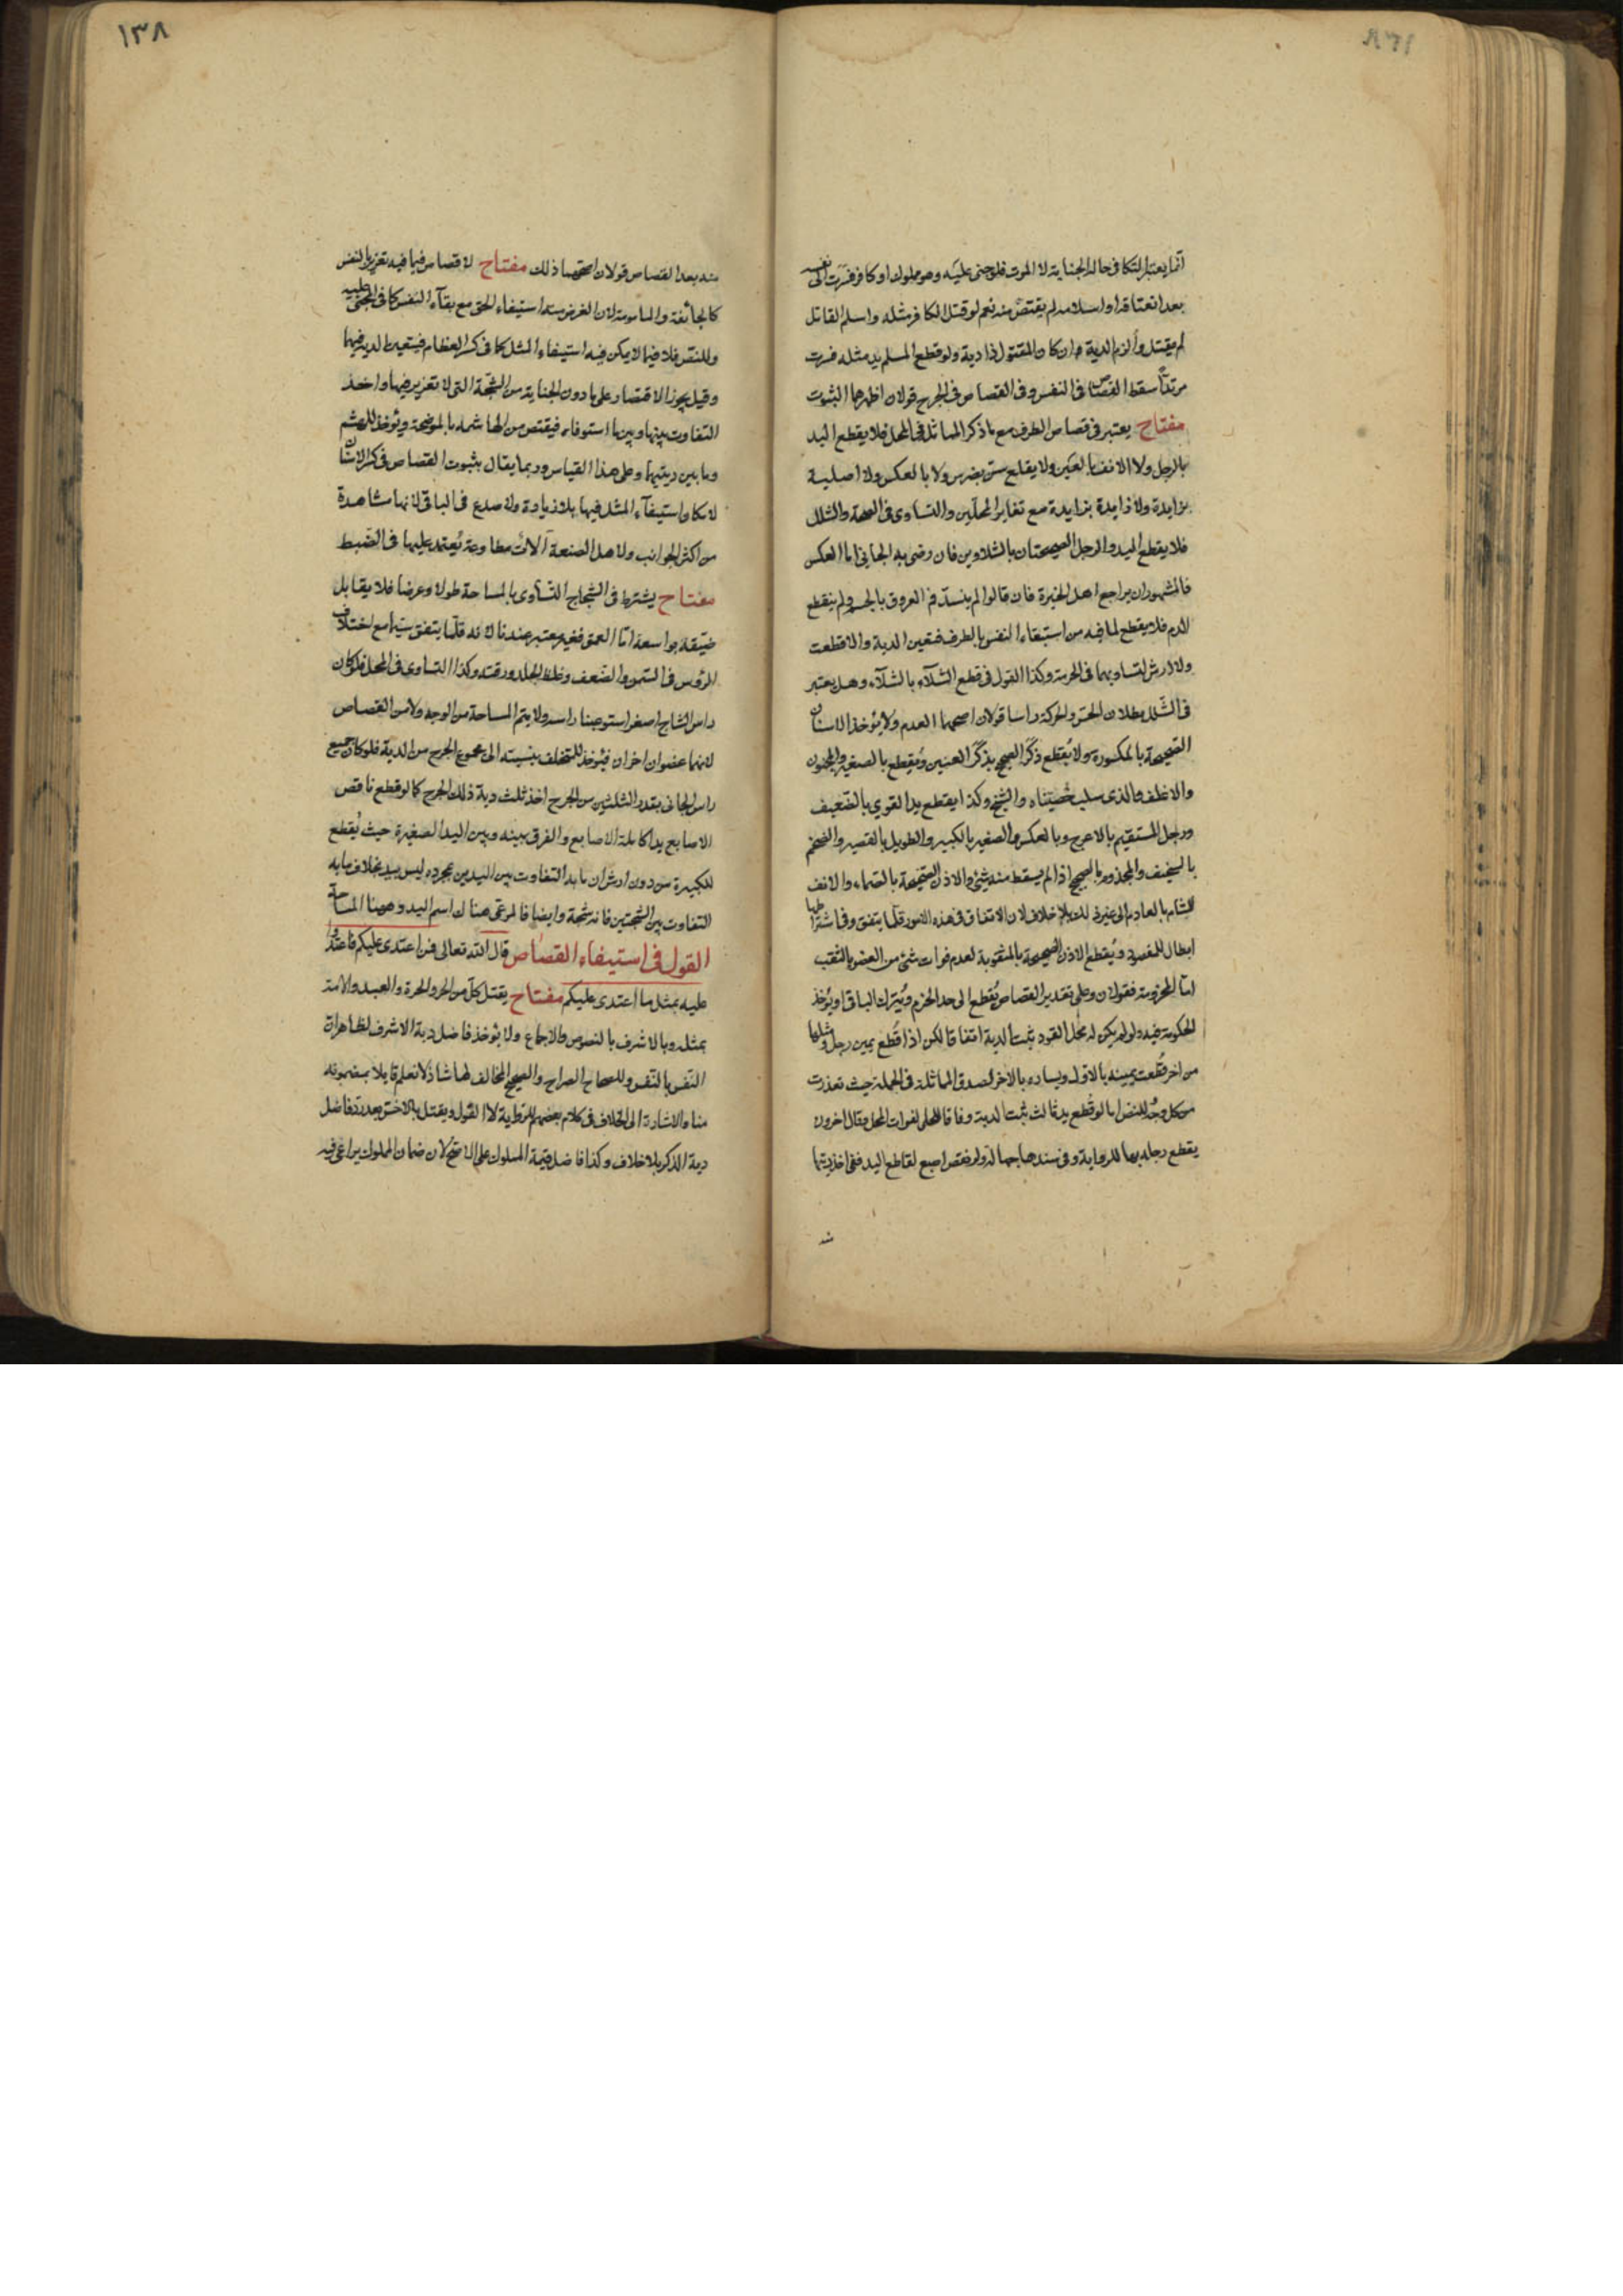 انما يعتبر التكافى حالة الجناية لا الموت فلو جنى عليه وهو مملوك او كافر فسرت الى نفسه
بعد انعتاقه او اسلامه لم يقتص منه نعم لو قتل الكافر مثله واسلم القاتل
لم يقتل وألزم الدية ان كان المقتول ذا دية ولو قطع المسلم يد مثله فسرت
مرتدا سقط القصاص فى النفس وفى القصاص فى الجرح قولان اظهرهما الثبوت
مفتاح يعتبر فى قصاص الطرف مع ما ذكر المماثل فى المحل فلا يقطع اليد
بالرجل ولا الانف بالعين ولا يقلع سن بضرس ولا بالعكس ولا اصلية
بزايدة ولا زايدة بزايدة مع تغاير المحلين والتساوى فى الصحة والشلل
فلا يقطع اليد والرجل الصحيحتان بالشلاوين فان رضى به الجانى اما العكس
فالمشهور ان يراجع اهل الخبرة فان قالوا لم ينسد فم العروق بالحسم ولم ينقطع
الدم فلا يقطع لما فيه من استبقاء النفس بالطرف فتعين الدية والا قطعت
ولا ارش لتساويهما فى الجرمة وكذا القول فى قطع الشلآء بالشلآء وهل يعتبر
فى الشلل بطلان الحس والحركة راسا قولان اصحهما العدم ولا يؤخذ الاسنان
الصحيحة بالمكسورة ولا يُقطع ذكَر الصحيح بذكَر العنين ويُقطع بالصغير والمجنون
والاغلف والذى سلبت خصيتاه والشيخ وكذا يقطع يد القوي بالضعيف
ورجل المستقيم بالاعرج وبالعكس والصغير بالكبير والطويل بالقصير والضخم
بالنحيف والمجذوم بالصحيح اذا لم يسقط منه شئ والاذن الصحيحة بالصماء والانف
الشام بالعادم الى غير ذلك بلا خلاف لان الاتفاق فى هذه الامور قلما يتفق وفى اشتراطها
ابطال للمقصود ويُقطع الاذن الصحيحة بالمثقوبة لعدم فوات شئ من العضو بالثقب
اما المخزومة فقولان وعلى تقدير القصاص يُقطع الى حد الخزم ويُترك الباقى او يؤخذ
الحكومة فيه ولو لم يكن له محل القود ثبت الدية اتفاقا لكن اذا قُطع يمين رجل ومثلها
من اخر قُطعت يمينه بالاول ويساره بالاخر لصدق المماثلة فى الجملة حيث تعذرت
من كل وجه وللنص اما لو قُطع يد ثالث ثبت الدية وفاقا للحلى لفوات المحل وقال اخرون
يقطع رجله بها للرواية وفى سندها جهالة ولو نقص اصبع لقاطع اليد ففى اخذ ديتها
منه
١٣٨
منه بعد القصاص قولان اصحهما ذلك مفتاح لا قصاص فيما فيه تغرير بالنفس
كالجائفة والمامومة لان الغرض منه استيفاء الحق مع بقآء النفس كما فى المجنى عليه
وللنقص فلا فيما لا يمكن فيه استيفاء المثل كما فى كسر العظام فيتعين الدية فيهما
وقيل يجوز الاقتصار على ما دون الجناية من الشجة التى لا تغرير فيها واخذ
التفاوت بينها وبين ما استوفاه فيقتص من الهاشمة بالموضحة ويؤخذ للهشم
وما بين ديتيهما وعلى هذا القياس وربما يقال بثبوت القصاص فى كسر الاسنان
لامكان استيفآء المثل فيها بلا زيادة ولا صدع فى الباقى لانها مشاهدة
من اكثر الجوانب ولاهل الصنعة آلات مطاوعة يُعتمد عليها فى الضبط
مفتاح يشترط فى الشجاج التساوى بالمساحة طولا وعرضا فلا يقابل
ضيقة بواسعة امّا العمق فغير معتبر عندنا لانه قلما يتفق سيما مع اختلاف
الرؤس فى السمن والضعف وغلظ الجلد ورقته وكذا التساوى فى المحل فلو كان
راس الشاج اصغر استوعبنا راسه ولا يتم المساحة من الوجه ولا من القصاص
لانهما عضوان اخران فيؤخذ للمتخلف بنسبته الى مجموع الجرح من الدية فلو كان جميع
راس الجانى بقدر الثلثين من الجرح اخذ ثلث دية ذلك الجرح كما لو قطع ناقص
الاصابع يدا كاملة الاصابع والفرق بينه وبين اليد الصغيرة حيث يُقطع
للكبيرة من دون ارش ان ما به التفاوت بين اليدين بمجرده ليس بيد بخلاف ما به
التفاوت بين الشجتين فانه شجة وايضا فالمرعى هناك اسم اليد وههنا المساحة
القول فى استيفاء القصاص قال الله تعالى فمن اعتدى عليكم فاعتدوا
عليه بمثل ما اعتدى عليكم مفتاح يقتل كل من الحر والحرة والعبد والامة
بمثله وبالاشرف بالنصوص والاجماع ولا يؤخذ فاضل دية الاشرف لظاهر ان
النفس بالنفس وللصحاح الصراح والصحيح المخالف لها شاذ لا نعلم قايلا بمضمونه
منا والاشارة الى الخلاف فى كلام بعضهم للرواية لا القول ويقتل بالاخس بعد رد فاضل
دية الذكر بلا خلاف وكذا فاضل قيمة المملوك على الاصح لان ضمان المملوك يراعى فيه